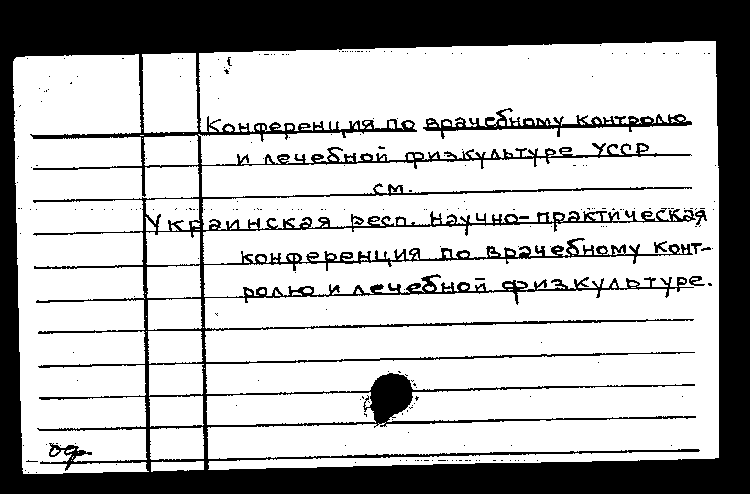 Конференция по врачебному контролю
и лечебной физкультуре УССР.
см.
Украинская респ. научно-практическая
конференция по врачебному конт-
ролю и лечебной физкультуре.